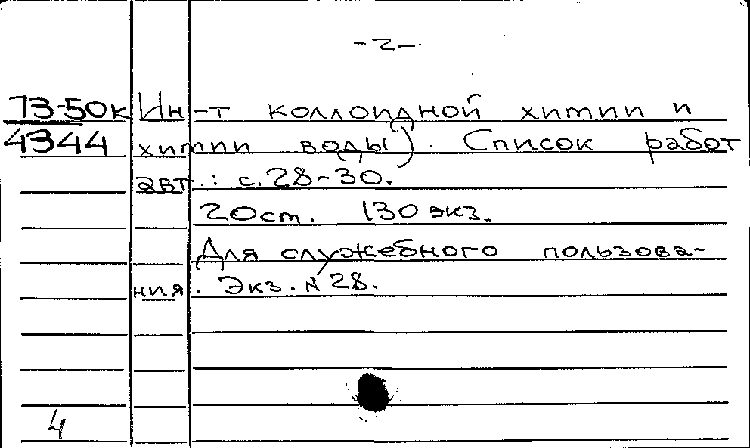 -2-
73-50к Ин-т коллоидной химии и
4344 химии воды). Список работ
авт.: с.28-30.
20см. 130 экз.
Для служебного пользова-
ния. Экз. № 28.
4